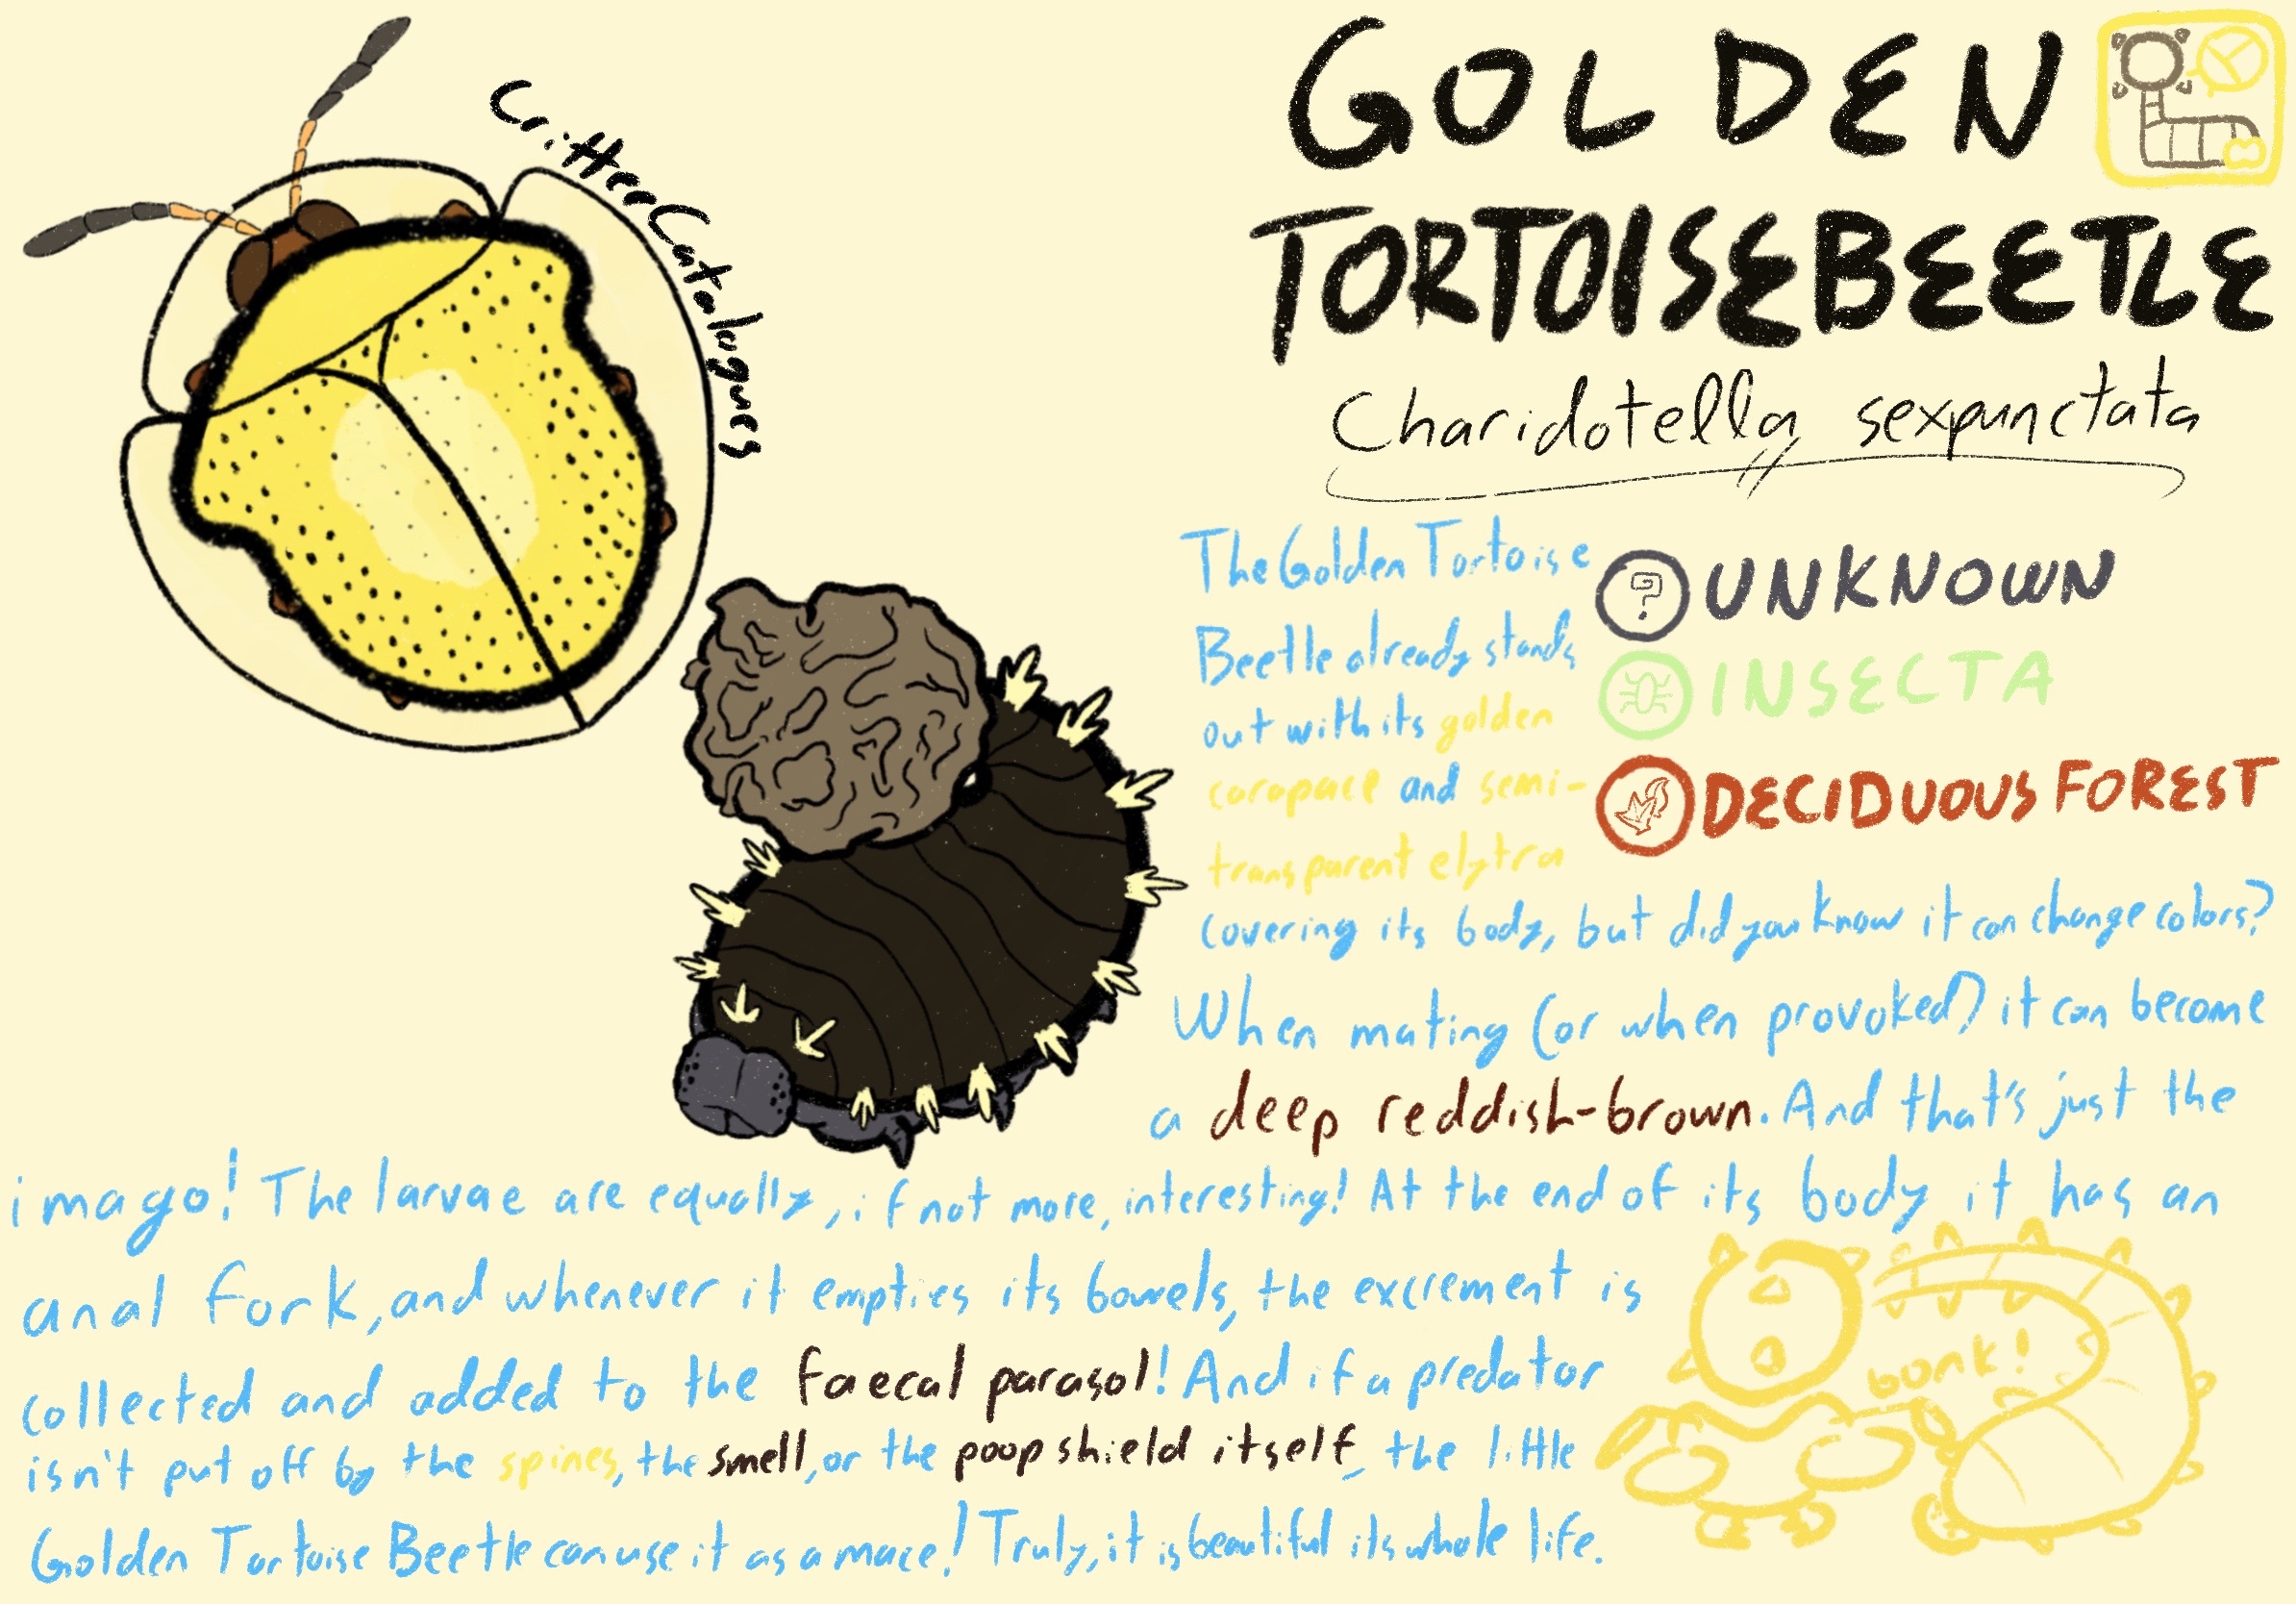 CritterCatalogues
GOLDEN
TORTOISE BEETLE
Charidotella sexpunctata
? UNKNOWN
INSECTA
DECIDUOUS FOREST
The Golden Tortoise
Beetle already stands
out with its golden
carapace and semi-
transparent elytra
covering its body, but did you know it can change colors?
When mating (or when provoked) it can become
a deep reddish-brown. And that's just the
imago! The larvae are equally, if not more, interesting! At the end of its body it has an
anal fork, and whenever it empties its bowels, the excrement is
collected and added to the faecal parasol! And if a predator
isn't put off by the spines, the smell, or the poop shield itself, the little
Golden Tortoise Beetle can use it as a mace! Truly, it is beautiful its whole life.
bonk!